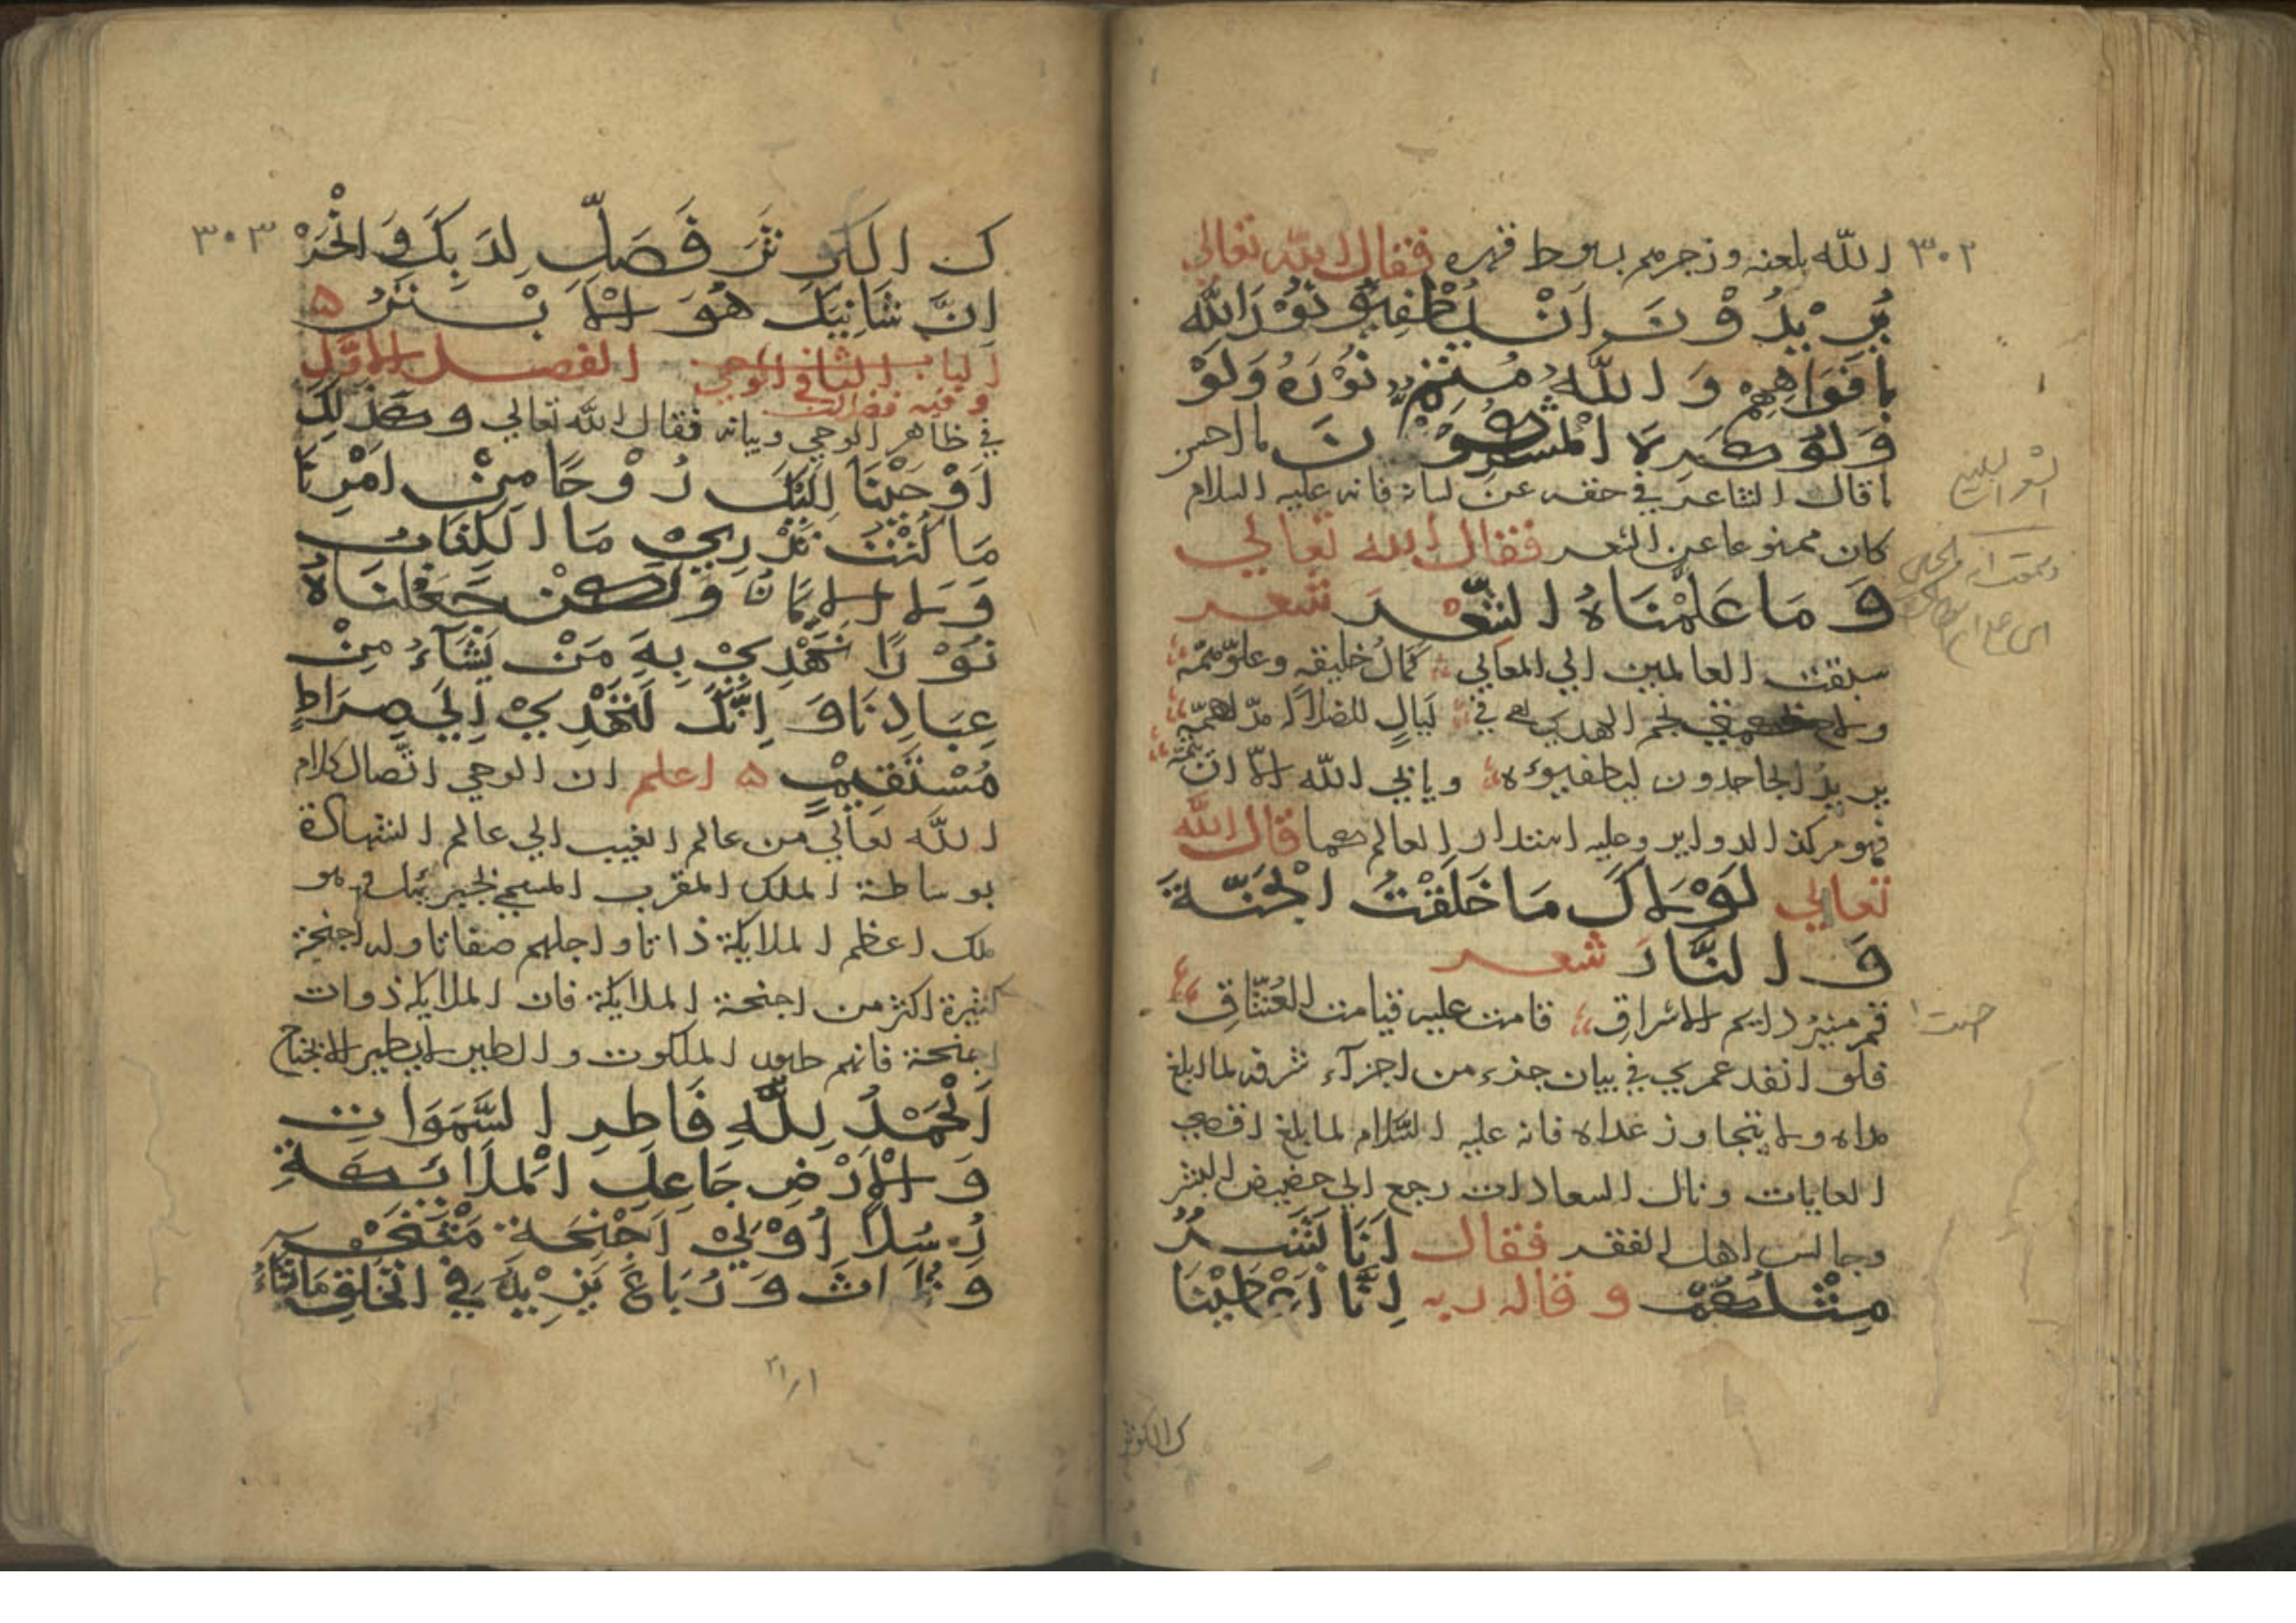 ٣٠٢
الله بلعنه وزجرهم بسوط قهره فقال الله تعالي
يُرِيْدُوْنَ اَنْ لِيُطْفِئُو نُوْرَ اللّٰه
بافَوَاهِهِمْ وَ اللّٰهُ مُتِمُّ نُوْرَهُ وَلَوْ
وَلَوْ كَرِهَ الْمُشْرِكُوْنَ ما احسن
ما قال الشاعر في حقه عن لسانه فانه عليه السلام
كان ممنوعا عن الشعر فقال الله تعالي
وَ مَا عَلَّمْنَاهُ الشِّعْرَ شعر
سبقت العالمين الي المعالي كمال خليقة وعلو همّة
ولاح نجم الهدي في ليالٍ للضلالة مدلهمّة
يريد الجاحدون ليطفيوه ويابي الله الا ان يتمّه
فهو مركز الدواير وعليه استدار العالم كما قال الله
تعالي لَوْلَاكَ مَا خَلَقْتُ الْجَنَّةَ
وَ النَّارَ شعر
قمر منير دايم الاشراق قامت عليه قيامت العشّاق
فلو انفد عمري في بيان جزء من اجزآء شرفه لما ابلغ
مداه ولا يتجاوز غداه فانه عليه السّلام لما بلغ اقصي
الغايات ونال السعادات رجع الي حضيض البشر
وجالس اهل الفقر فقال اَنَا بَشَرٌ
مِثْلُكُمْ و قال ربه اِنَّا اَعْطَيْنَا
ك الكوثر
٣٠٣
كَ الْكَوْثَرَ فَصَلِّ لِرَبِّكَ وَ انْحَرْ
اِنَّ شَانِيَكَ هُوَ الْاَبْتَرُ
الباب الثاني في الوحي الفصل الاوّل
وفيه فصلان
في ظاهر الوحي وبيانه فقال الله تعالي وكَذلِكَ
اَوْحَيْنَا اِلَيْكَ رُوْحًا مِنْ اَمْرِنَا
مَا كُنْتَ تَدْرِيْ مَا الْكِتَابُ
وَلَا الْاِيمَانَ وَلكِنْ جَعَلْنَاهُ
نُوْرًا نَهْدِيْ بِهِ مَنْ يَشَآءُ مِنْ
عِبَادِنَا وَ اِنَّكَ لَتَهْدِيْ اِلَي صِرَاطٍ
مُسْتَقِيْمٍ اعلم ان الوحي اتّصال كلام
اللّه تعالي من عالم الغيب الي عالم الشهادة
بوساطة الملك المقرب المسمي بجبرئيل وهو
ملك اعظم الملايكة ذاتا واجلهم صفاتا وله اجنحة
كثيرة اكثر من اجنحة الملايكة فان الملايكة ذوات
اجنحة فانهم طيور الملكوت والطير لا يطير الا بجناح
اَلْحَمْدُ لِلّهِ فَاطِرِ السَّمَوَاتِ
وَ الْاَرْضِ جَاعِلِ الْمَلَائِكَةِ
رُسُلًا اُوْلِيْ اَجْنِحَة مَثْنَى
وَ ثُلَاثَ وَ رُبَاعَ يَزِيْدُ فِي الْخَلْقِ مَا يَشَاءُ